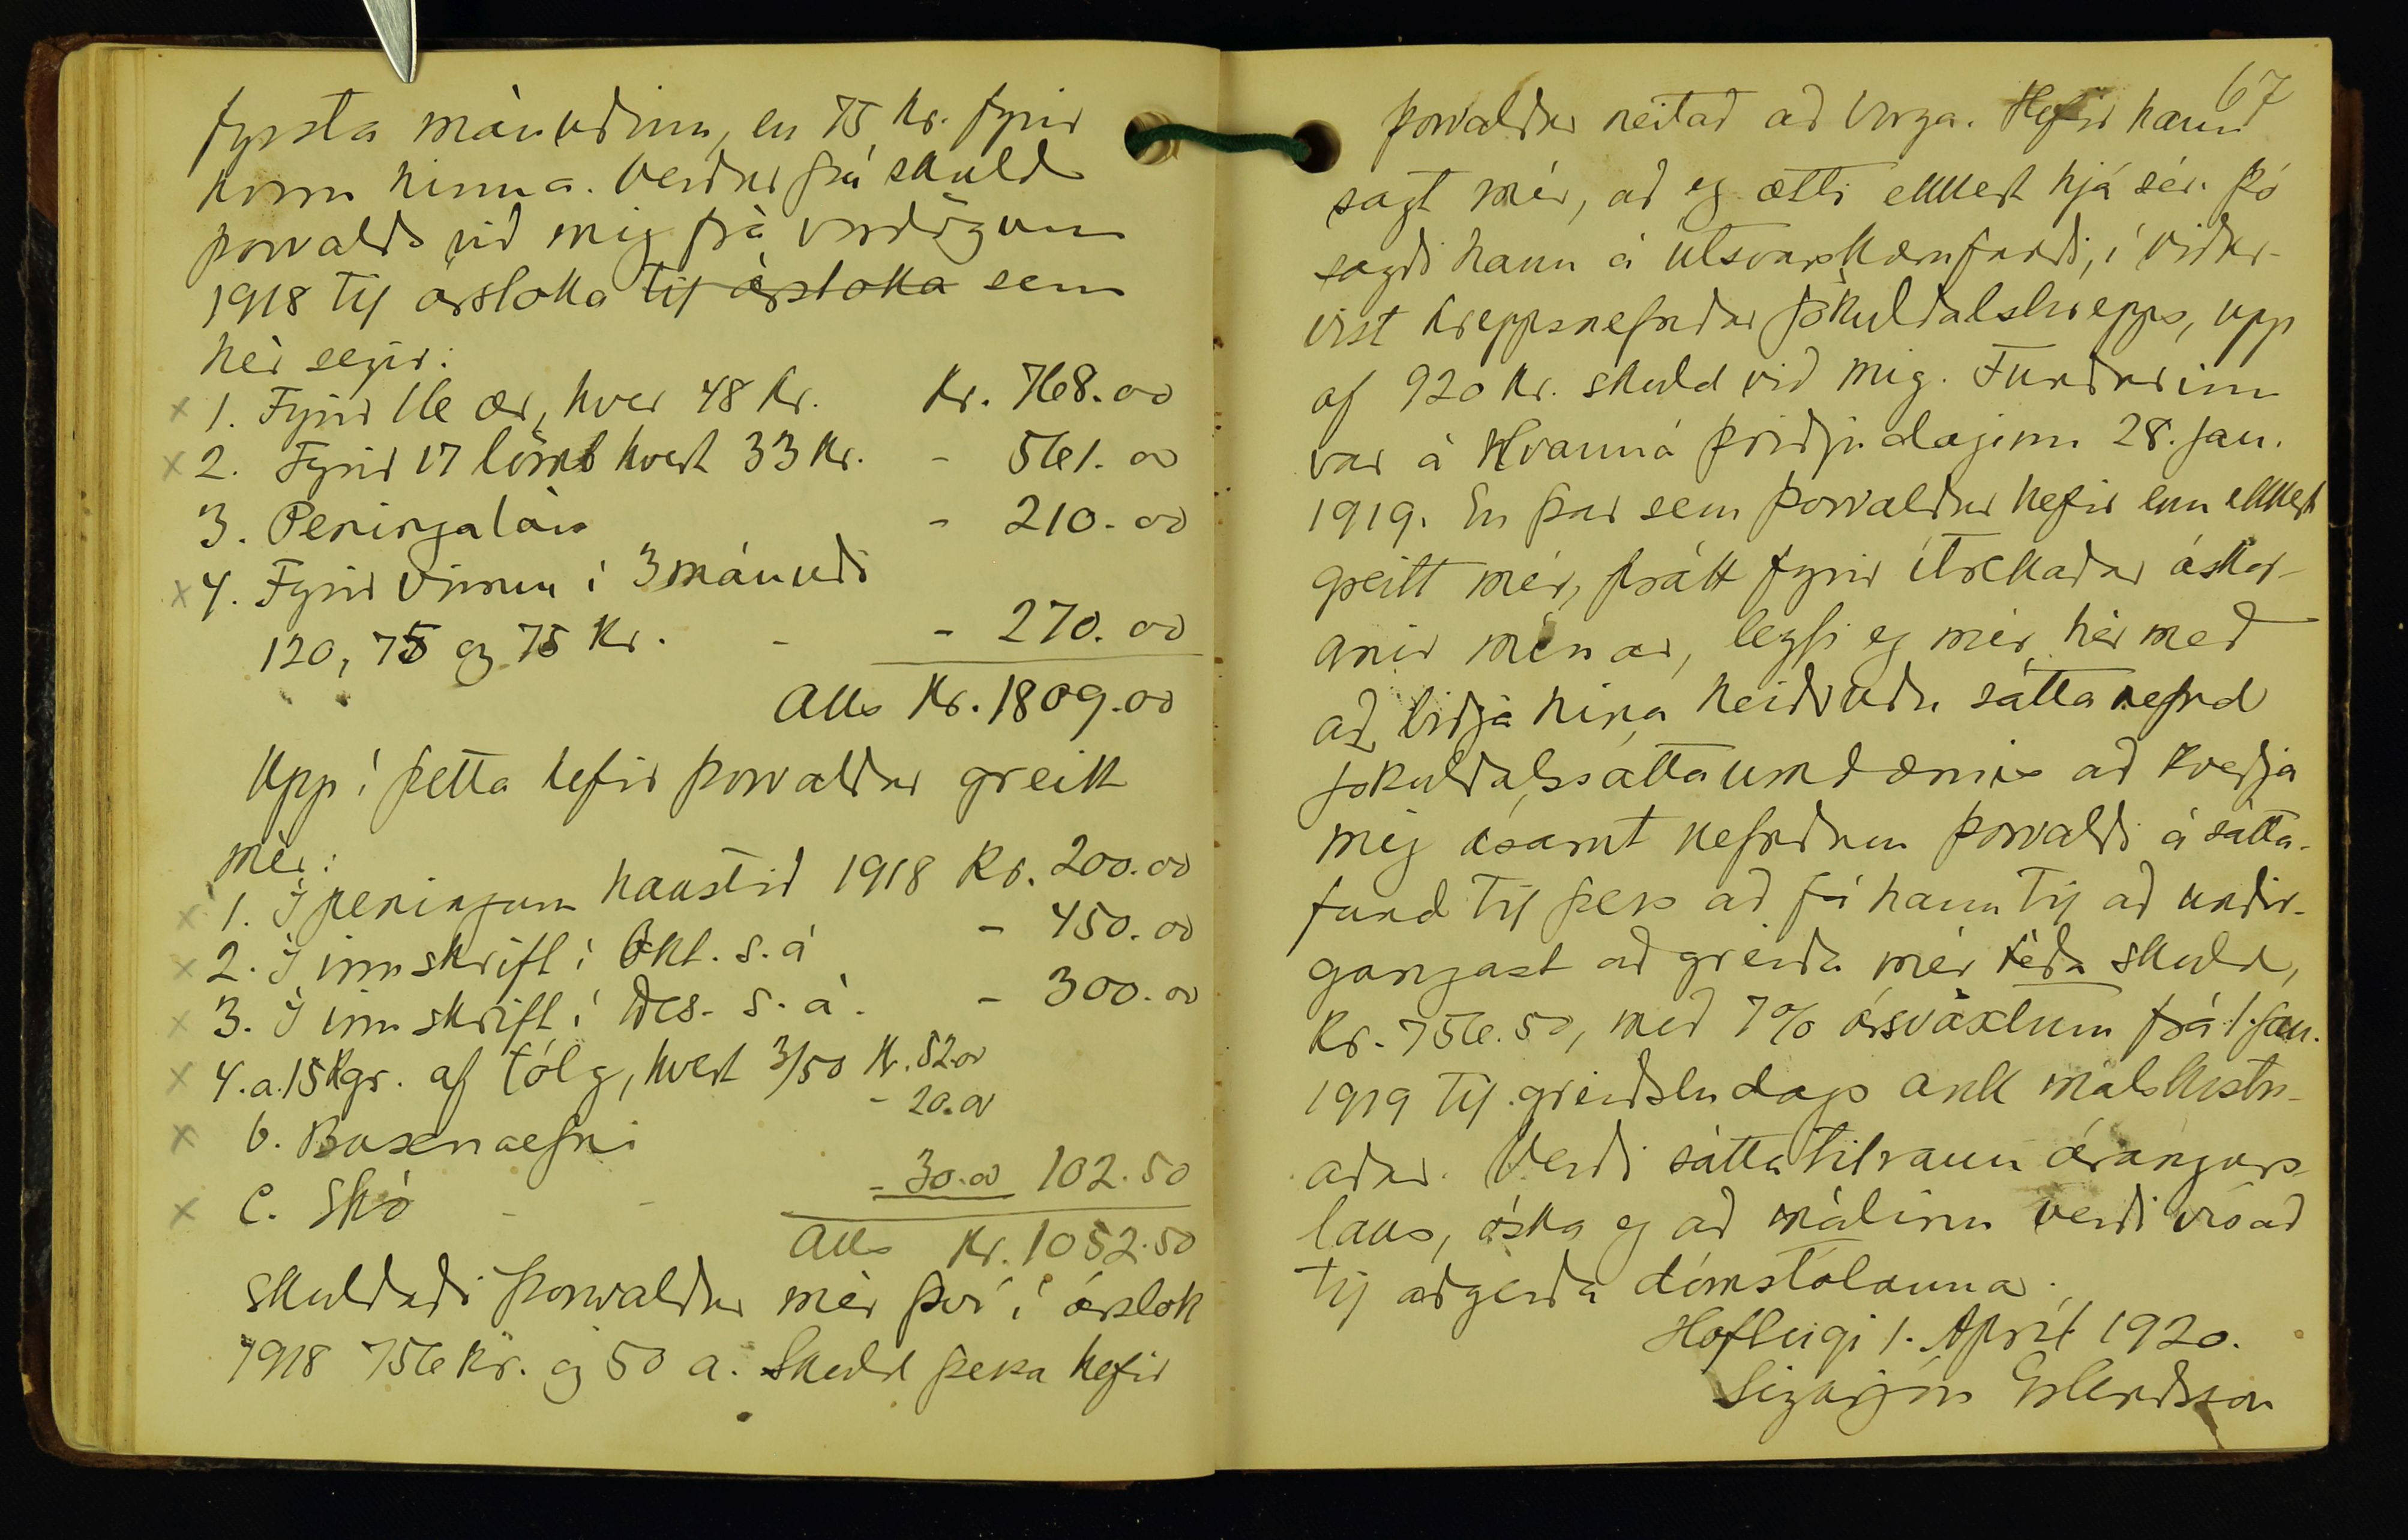 fyrsta mánuðinn, en 75 kr. fyrir
hvern hinna. Verður þá skuld
Þorvalds við mig frá vordögum
1918 til ársloka til ársloka sem
hér segir:
x 1. Fyrir 16 ær, hver 48 kr. Kr. 768.00
x 2. Fyrir 17 lömb hvert 33 kr. - 561.00
3. Peningalán - 210.00
x 4. Fyrir vinnu í 3 mánuði
120, 75 og 75 kr. - - 270.00
Alls Kr. 1809.00
Upp í þetta hefir Þorvaldur greitt
mér:
x 1. Í peningum haustið 1918 Kr. 200.00
x 2. Í innskrift í Okt. s.á - 450.00
x 3. Í innskrift í Des. s.á. - 300.00
x 4.a. 15 kgr. af tólg, hvert 3/50 Kr. 52.00
x b. Buxnaefni - 20.00
x c. Skó - - - 30.00 102.50
Alls Kr. 1052.50
Skuldaði Þorvaldur mér því í árslok
1918 756 kr. og 50 a. Skuld þessa hefir
67
Þorvaldur neitað að borga. Hefir hann
sagt mér, að eg ætti ekkert hjá sér. Þó
sagði hann á útsvarskærufundi, í viður-
vist hreppsnefndar Jökuldalshrepps, upp
af 920 kr. skuld við mig. Fundurinn
var á Hvanná þriðjudaginn 28. jan.
1919. En þar sem Þorvaldur hefir enn ekkert
greitt mér, þrátt fyrir ítrekaðar áskor-
anir mínar, leyfi eg mér hér með
að biðja hina heiðruðu sáttanefnd
Jökuldalssáttaumdæmis að kveðja
mig ásamt nefndum Þorvaldi á sátta-
fund til þess að fá hann til að undir-
gangast að greiða mér téða skuld,
Kr. 756.50, með 7% ársvöxtum frá 1. jan.
1919 til greiðsludags auk málskostn-
aðar. Verði sáttatilraun árangurs
laus, óska eg að málinu verði vísað
til aðgerða dómstólanna.
Hofteigi 1. Apríl 1920.
Sigurjón Erlendsson